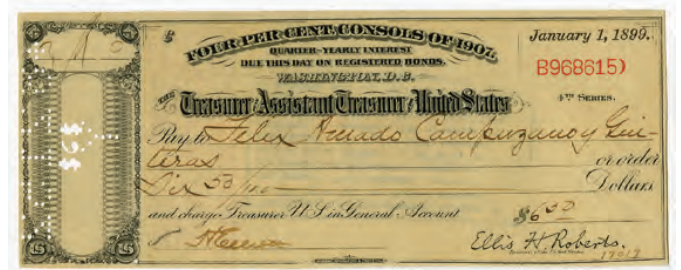 $
FOUR PER CENT. CONSOLS OF 1907,
QUARTER-YEARLY INTEREST
DUE THIS DAY ON REGISTERED BONDS.
WASHINGTON, D.C.
January 1, 1899.
B968615)
4TH SERIES.
THE Treasurer or Assistant Treasurer of the United States
Pay to Felix Amado Campuzano y Gui-
teras or order
Six 50/100 Dollars
and charge Treasurer U S in General Account $6 50
Ellis H. Roberts.
17017
$6$